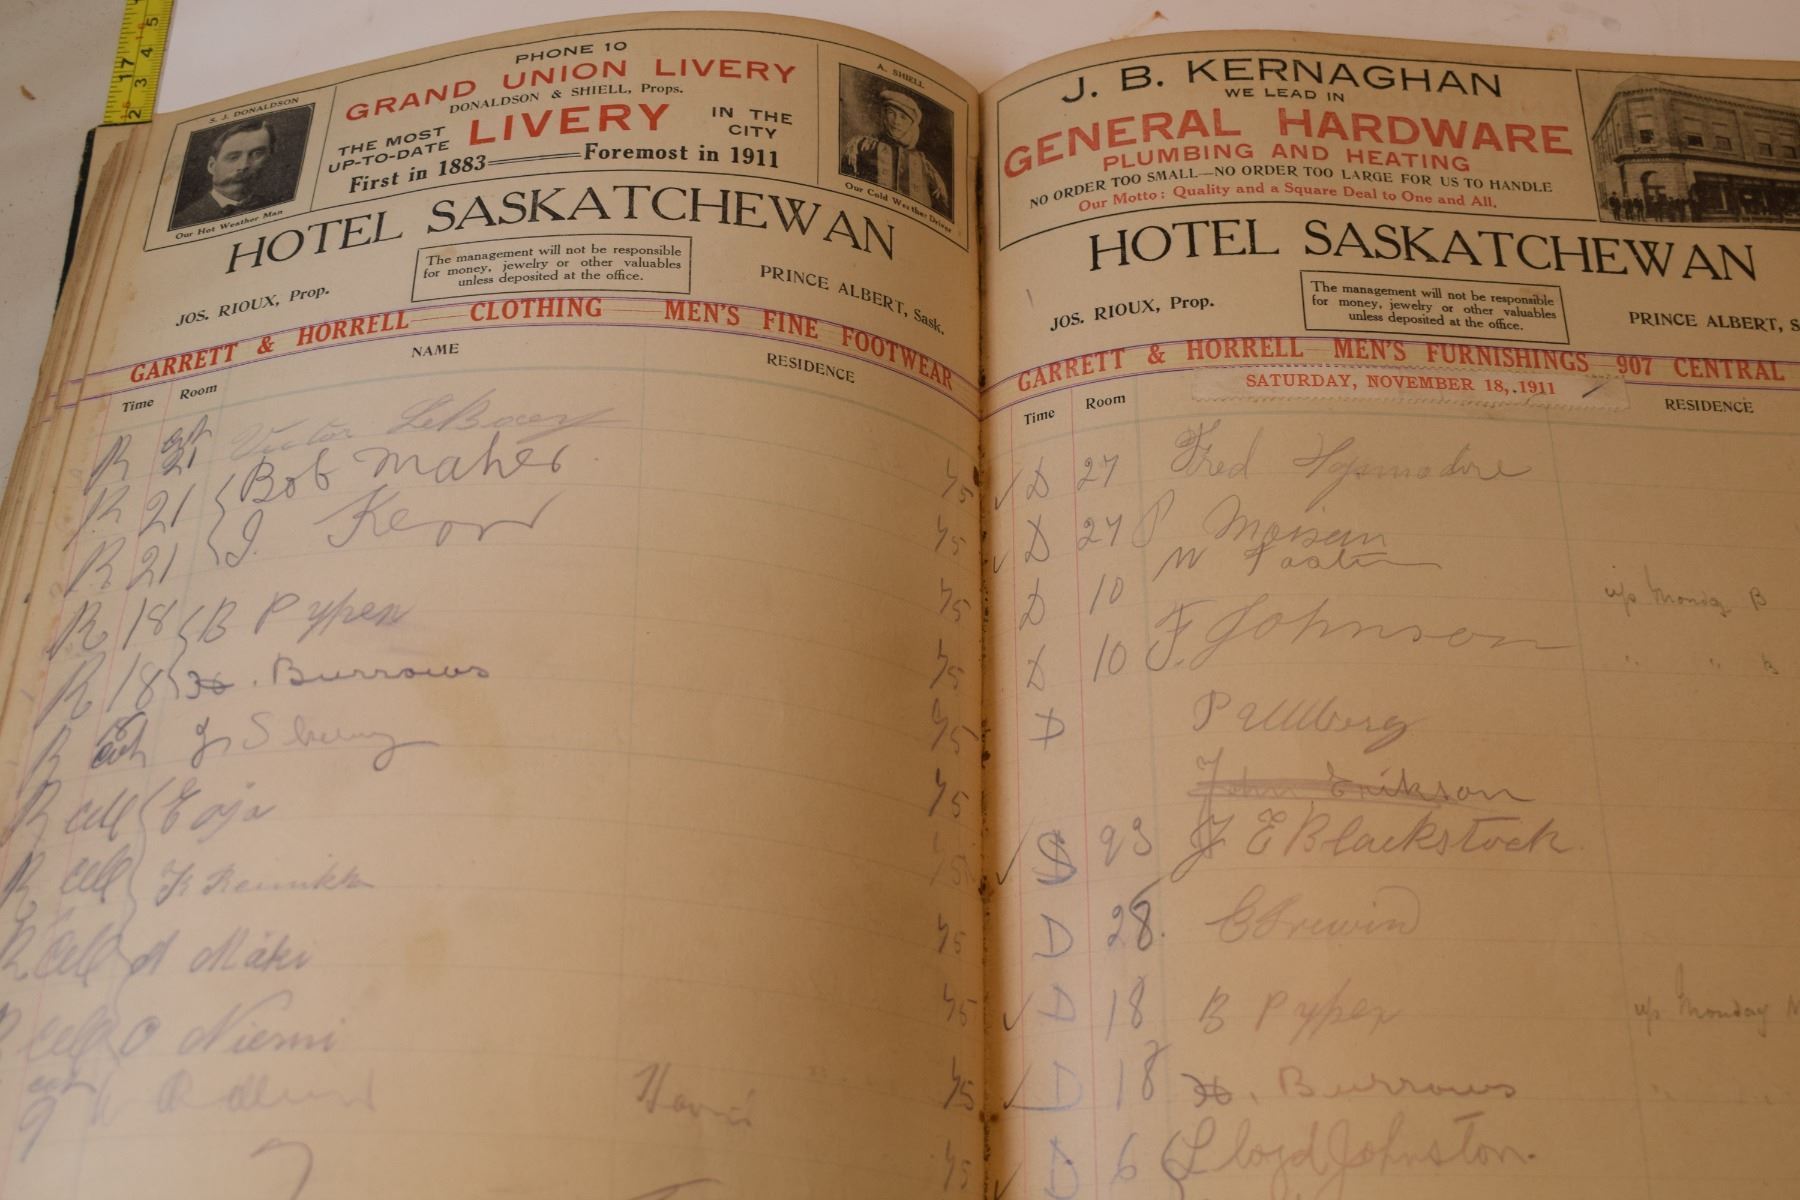 PHONE 10
S. J. DONALDSON
GRAND UNION LIVERY
DONALDSON & SHIELL, Props.
THE MOST UP-TO-DATE LIVERY IN THE CITY
First in 1883 Foremost in 1911
Our Hot Weather Man
A. SHIELL
Our Cold Weather Driver
HOTEL SASKATCHEWAN
The management will not be responsible
for money, jewelry or other valuables
unless deposited at the office.
JOS. RIOUX, Prop.
PRINCE ALBERT, Sask.
GARRETT & HORRELL CLOTHING MEN'S FINE FOOTWEAR
Time Room NAME RESIDENCE
R 21 Victor
R 21 Bob Maher 75
R 21 J. 75
R 18 B Pypen 75
R 18 H. Burrows 75
R 75
R cell E Oja 75
R cell 75
R cell A Mäki 75
R cell O Niemi 75
75
75
J. B. KERNAGHAN
WE LEAD IN
GENERAL HARDWARE
PLUMBING AND HEATING
NO ORDER TOO SMALL—NO ORDER TOO LARGE FOR US TO HANDLE
Our Motto: Quality and a Square Deal to One and All.
HOTEL SASKATCHEWAN
The management will not be responsible
for money, jewelry or other valuables
unless deposited at the office.
JOS. RIOUX, Prop.
PRINCE ALBERT, S
GARRETT & HORRELL MEN'S FURNISHINGS 907 CENTRAL
SATURDAY, NOVEMBER 18, 1911
Time Room RESIDENCE
D 27 Fred
D 27 P Moisan
D 10 W up Monday B
D 10 F. Johnson " " B
D P Ullberg
John Erikson
D 93 J E Blackstock
D 28.
D 18 B Pypen up Monday
D 18 H. Burrows
D 6 Lloyd Johnston.